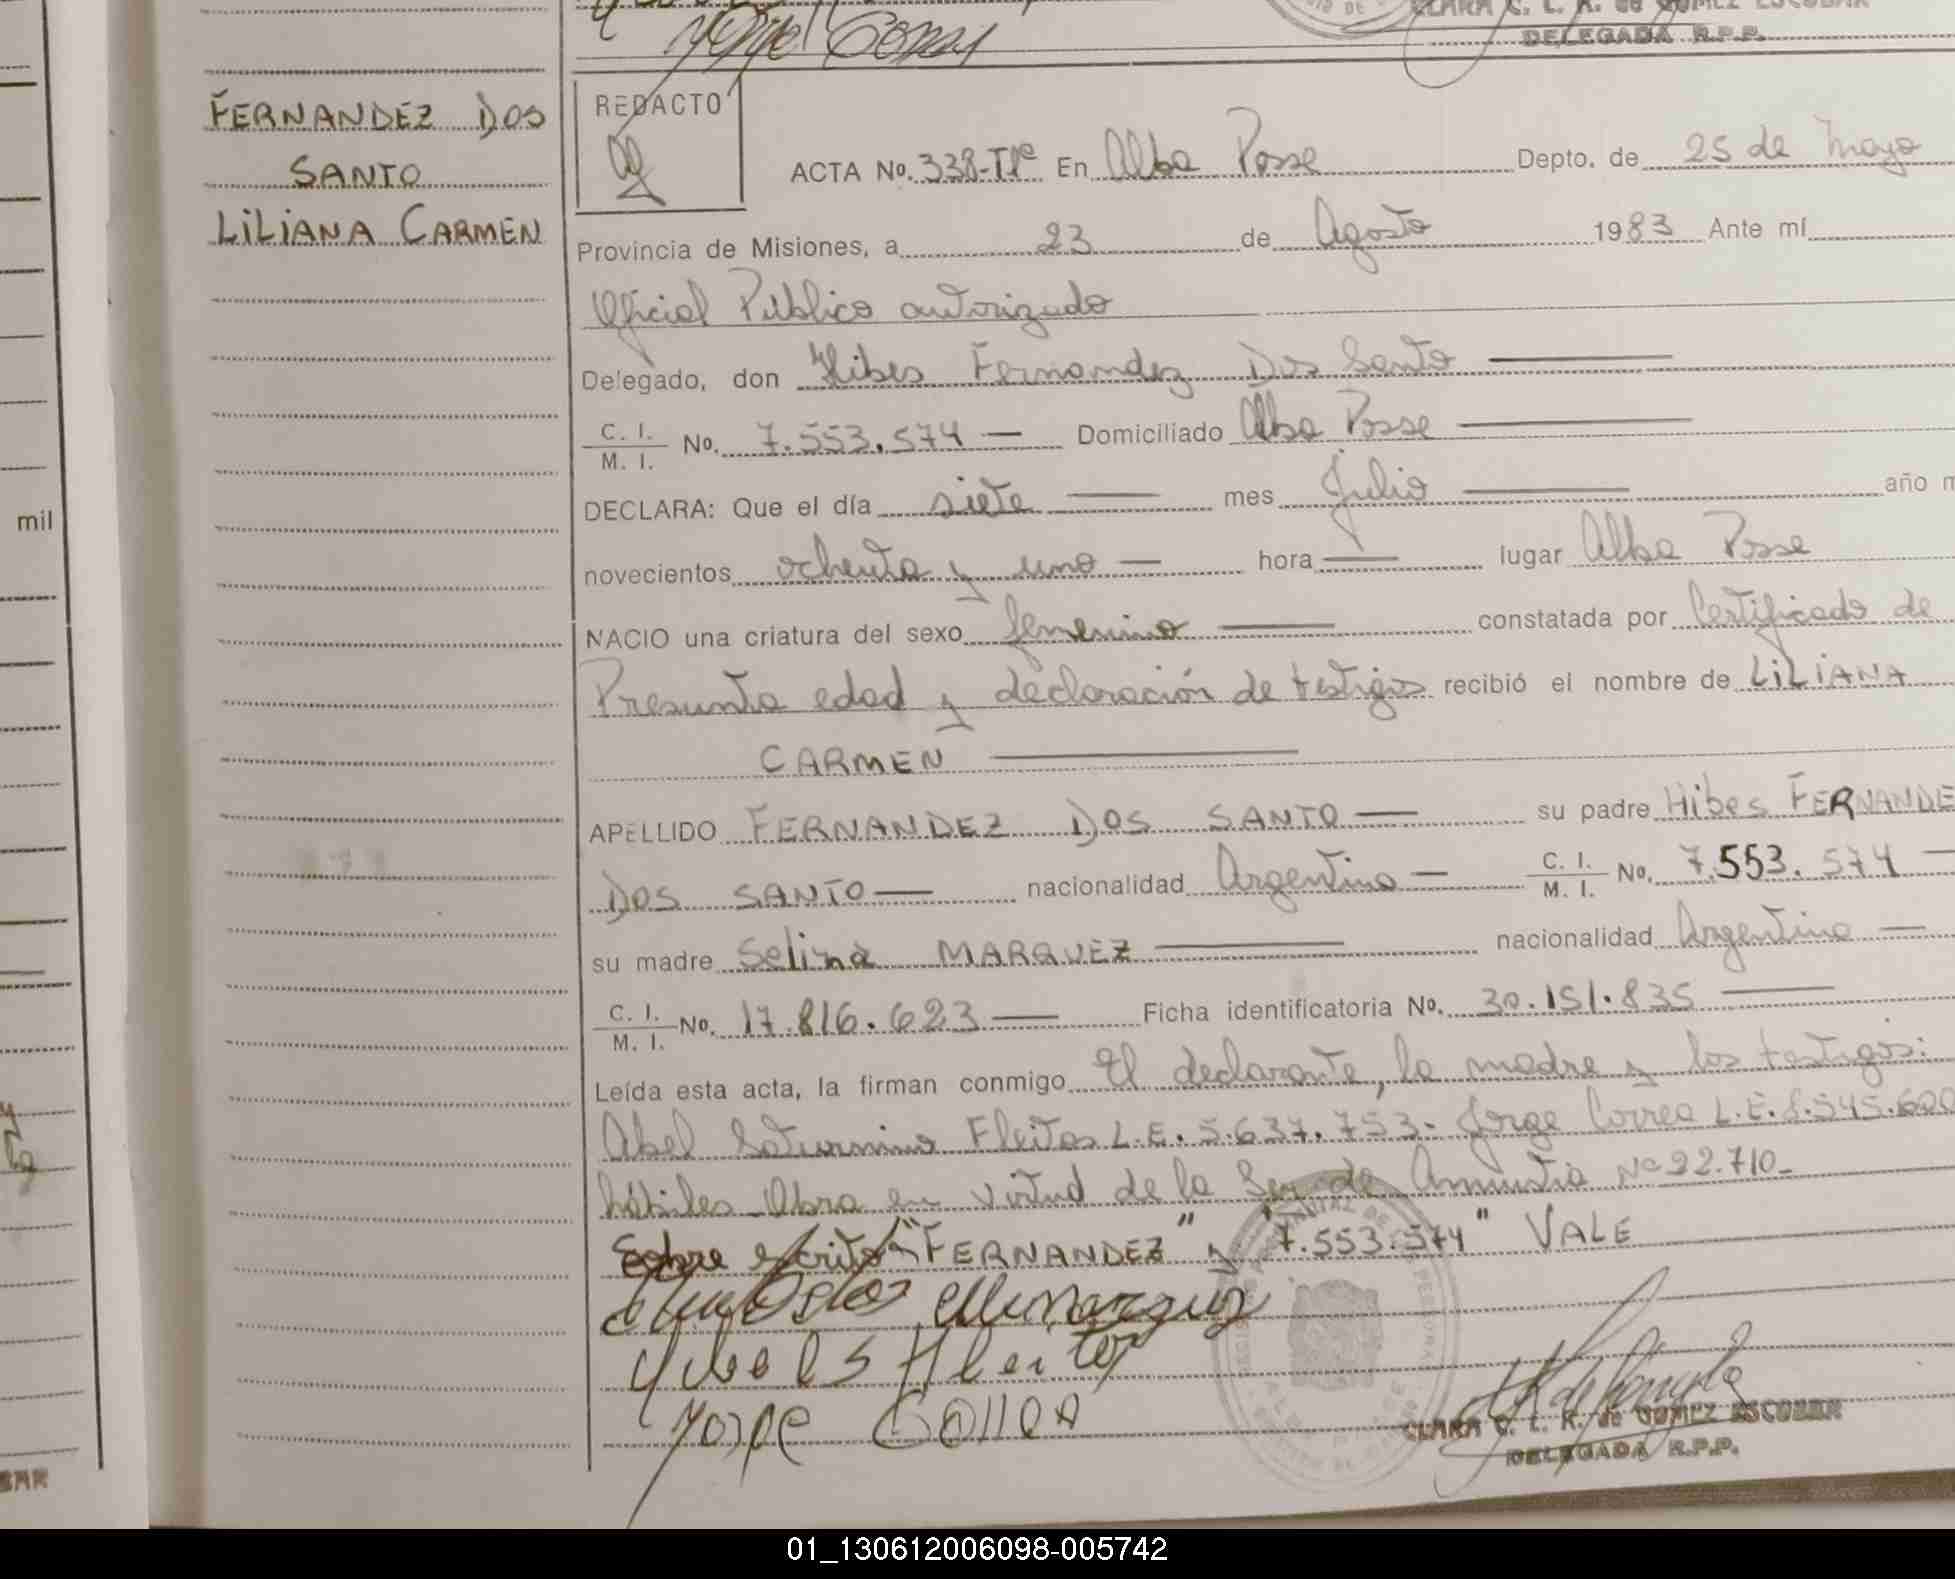 CLARA C. L. R. de GOMEZ ESCOBAR
DELEGADA R.P.P.
FERNANDEZ DOS
SANTO
LILIANA CARMEN
REDACTO
ACTA No. 338-Tº En Alba Posse Depto. de 25 de Mayo
Provincia de Misiones, a 23 de Agosto 1983 Ante mí
Oficial Público autorizado
Delegado, don Hibes Fernandez Dos Santo
C. I.
M. I. No. 7.553.574 — Domiciliado Alba Posse
DECLARA: Que el día siete mes Julio año m
novecientos ochenta y uno — hora — lugar Alba Posse
NACIO una criatura del sexo femenino constatada por Certificado de
Presunta edad y declaración de testigos recibió el nombre de LILIANA
CARMEN
APELLIDO FERNANDEZ DOS SANTO — su padre Hibes FERNANDE
DOS SANTO — nacionalidad Argentina — C. I.
M. I. No. 7.553.574 —
su madre Selina MARQUEZ nacionalidad Argentina —
C. I.
M. I. No. 17.816.623 — Ficha identificatoria No. 30.151.835
Leída esta acta, la firman conmigo El declarante, la madre y los testigos:
Abel Saturnino Fleitas L.E. 5.637.753- Jorge Correa L.E. 8.545.600
hábiles - Obra en virtud de la Ley de Amnistia Nº 22.710-
Sobre escrito "FERNANDEZ" y "7.553.574" VALE
Jorge Correa
CLARA C. L. R. de GOMEZ ESCOBAR
DELEGADA R.P.P.
mil
01_130612006098-005742